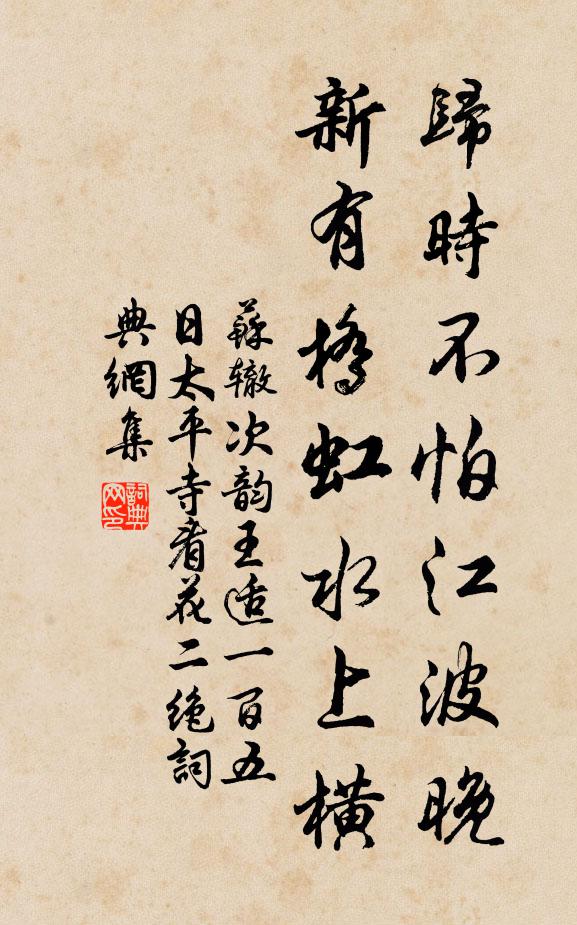 歸時不怕江波晚
新有橋虹水上橫
蘇轍次韵王适一百五
日太平寺看花二絶詞
典網集
詞典網印